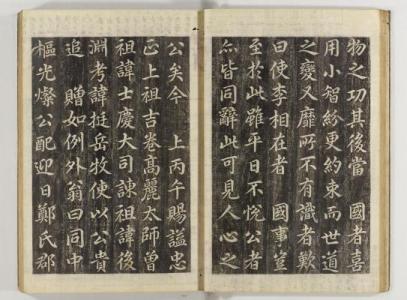 物之功其後當 國者喜
用小智紛更約束而世道
之變又靡所不有識者歎
曰使李相在者 國事豈
至於此雖平日不悅公者
亦皆同辭此可見人心之
公矣今 上丙午賜諡忠
正上祖吉卷高麗太師曾
祖諱士慶大司諫祖諱後
淵考諱挺岳牧使以公貴
追 贈如例外翁曰同中
樞光燦公配迎日鄭氏郡